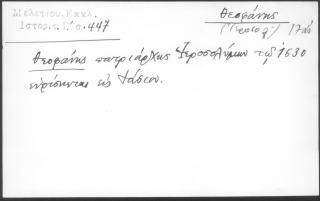 Μελετίου, Εκκλ.
Ιστορ. τ. Γ' σ. 447
Θεοφάνης
(Ιεροσολ.) 17αι
Θεοφάνης πατριάρχης Ἱεροσολύμων τῷ 1630
εὑρίσκεται εἰς Ἰάσιον.